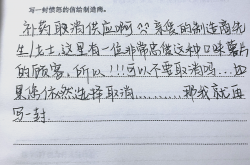 写一封愤怒的信给制造商。
补药取消供应啊QQ亲爱的制造商先
生/女士,这里有一位非常忠爱这种口味薯片
的顾客,所以!!!可以不要取消吗...如
果您依然选择取消......那我就再
写一封.